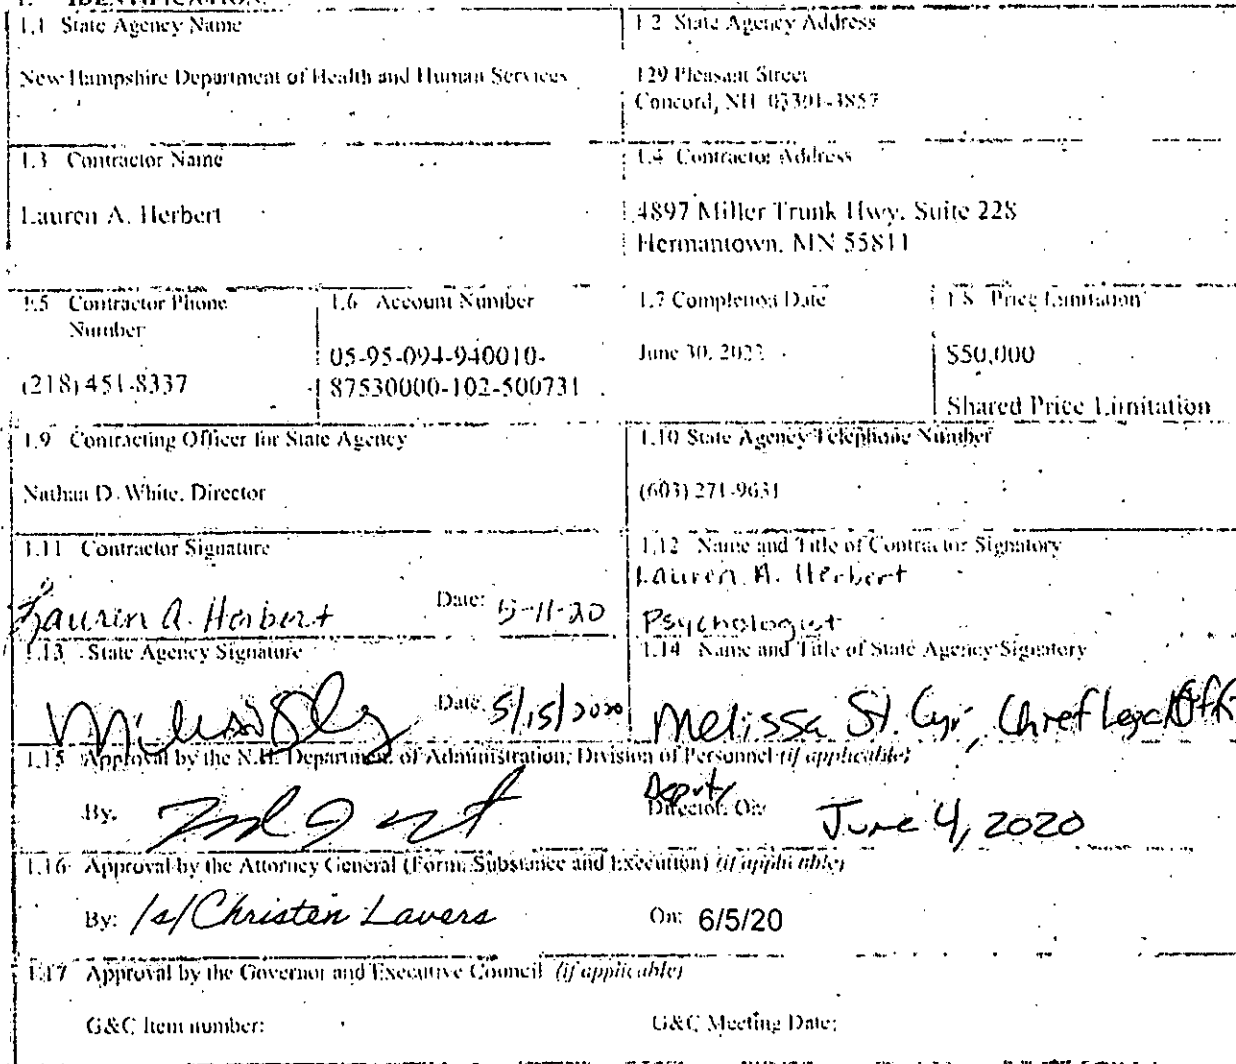 1. IDENTIFICATION.
1.1 State Agency Name
New Hampshire Department of Health and Human Services
1.2 State Agency Address
129 Pleasant Street
Concord, NH 03301-3857
1.3 Contractor Name
Lauren A. Herbert
1.4 Contractor Address
4897 Miller Trunk Hwy, Suite 228
Hermantown, MN 55811
1.5 Contractor Phone
Number
(218) 451-8337
1.6 Account Number
05-95-094-940010-
87530000-102-500731
1.7 Completion Date
June 30, 2022
1.8 Price Limitation
$50,000
Shared Price Limitation
1.9 Contracting Officer for State Agency
Nathan D. White, Director
1.10 State Agency Telephone Number
(603) 271-9631
1.11 Contractor Signature
Lauren A. Herbert
Date: 5-11-20
1.12 Name and Title of Contractor Signatory
Lauren A. Herbert
Psychologist
1.13 State Agency Signature
Date: 5/15/2020
1.14 Name and Title of State Agency Signatory
Melissa St. Cyr, Chief Legal Offi
1.15 Approval by the N.H. Department of Administration, Division of Personnel (if applicable)
By:
Deputy
Director, On: June 4, 2020
1.16 Approval by the Attorney General (Form, Substance and Execution) (if applicable)
By: /s/ Christen Lavers On: 6/5/20
1.17 Approval by the Governor and Executive Council (if applicable)
G&C Item number: G&C Meeting Date: